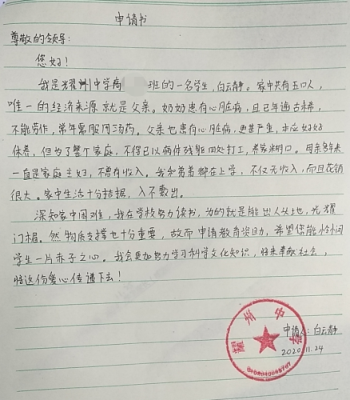 申请书
尊敬的领导：
您好！
我是耀州中学高 班的一名学生，白云静。家中共有五口人，
唯一的经济来源就是父亲。奶奶患有心脏病，且已年逾古稀，
不能劳作，常年需服用汤药。父亲也患有心脏病，本应好好
保养，但为了整个家庭，不得已以病体残躯四处打工，养家糊口。母亲多年来
一直是家庭主妇，不曾有收入。我和弟弟都在上学，不仅无收入，而且花销
很大。家中生活十分拮据，入不敷出。
深知家中困难，我在学校努力读书，为的就是能出人头地，光耀
门楣。然物质支撑也十分重要，故而申请教育资助，希望您能怜悯
学生一片赤子之心。我会更加努力学习科学文化知识，将来奉献社会，
将这份爱心传递下去！
申请人：白云静
2020.11.24
耀州中学